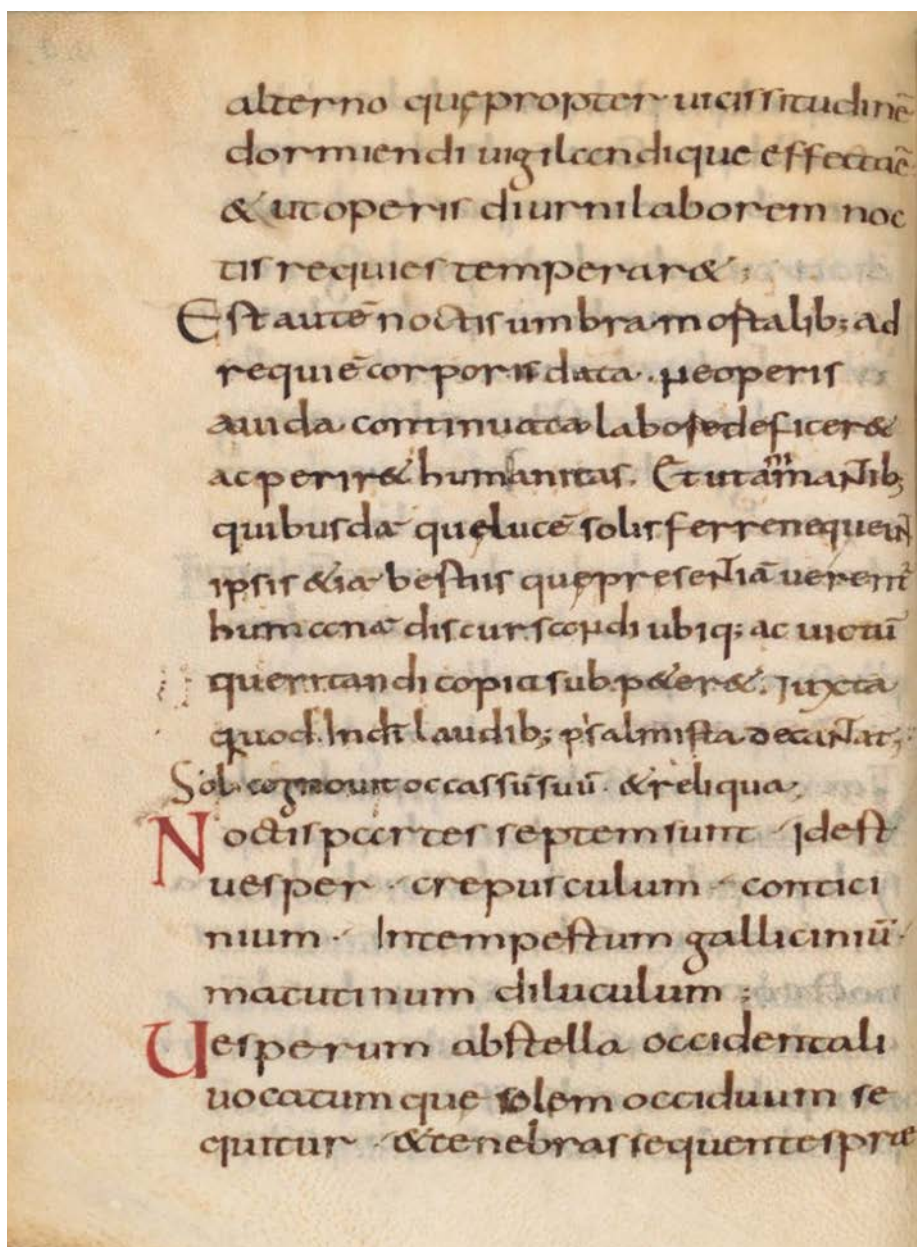 alterno quę propter uicissitudinē
dormiendi uigilandique effectaē
& ut operis diurni laborem noc
tis requies temperar&;
Est autē noctis umbra mortalib; ad
requiē corporis data. Ne operis
auida continuata labore deficer&
ac perir& humanitas. Et ut
quibusdā quę lucē solis ferre nequeunt
ipsis &iā bestiis quę presentiā uerent̄
humanā discursandi ubiq; ac uictū
queritandi copia subpeter&. Iuxta
quod laudib; psalmista decantat;
Sol cognouit occassū suū & reliqua;
Noctis partes septem sunt · Id est
uesper · crepusculum · contici
nium · Intempestum galliciniū ·
matutinum diluculum ;
Uesperum ab stella occidentali
uocatum que solem occiduum se
quitur · & tenebras sequentes prae